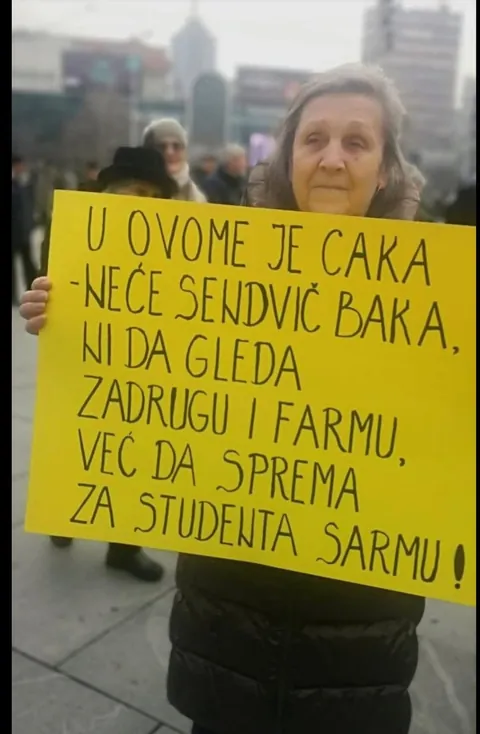 U OVOME JE CAKA
-NEĆE SENDVIČ BAKA,
NI DA GLEDA
ZADRUGU I FARMU,
VEĆ DA SPREMA
ZA STUDENTA SARMU!